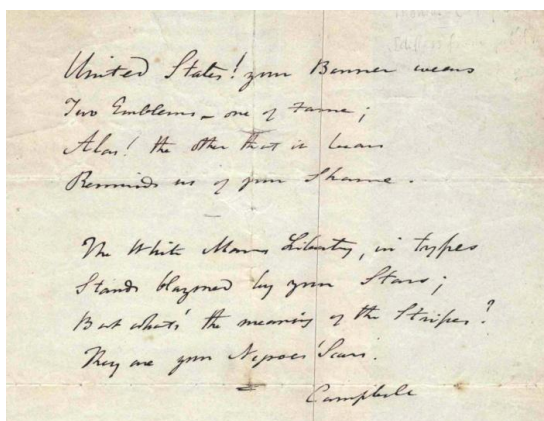 United States! your Banner wears
Two Emblems – one of Fame;
Alas! the other that it bears
Reminds us of your Shame.
The White Mans Liberty, in types
Stands blazoned by your Stars;
But what's the meaning of the Stripes?
They are your Negroes' Scars.
Campbell